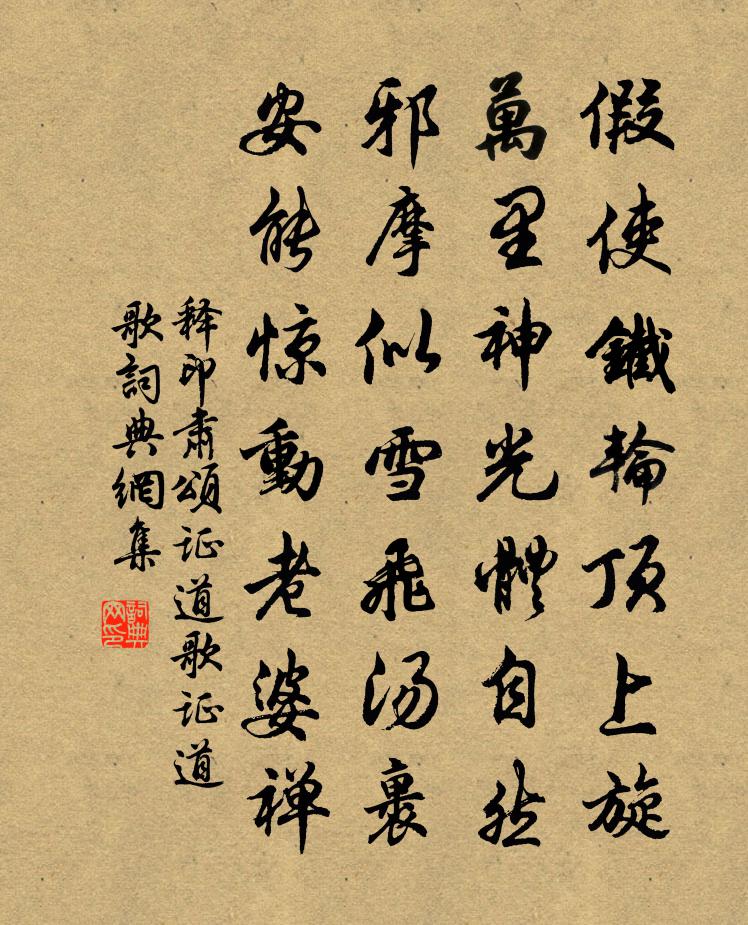 假使鐵輪頂上旋
萬里神光體自然
邪摩似雪飛汤裹
安能惊動老婆禅
释印肅頌证道歌证道
歌詞典網集
詞典
网印